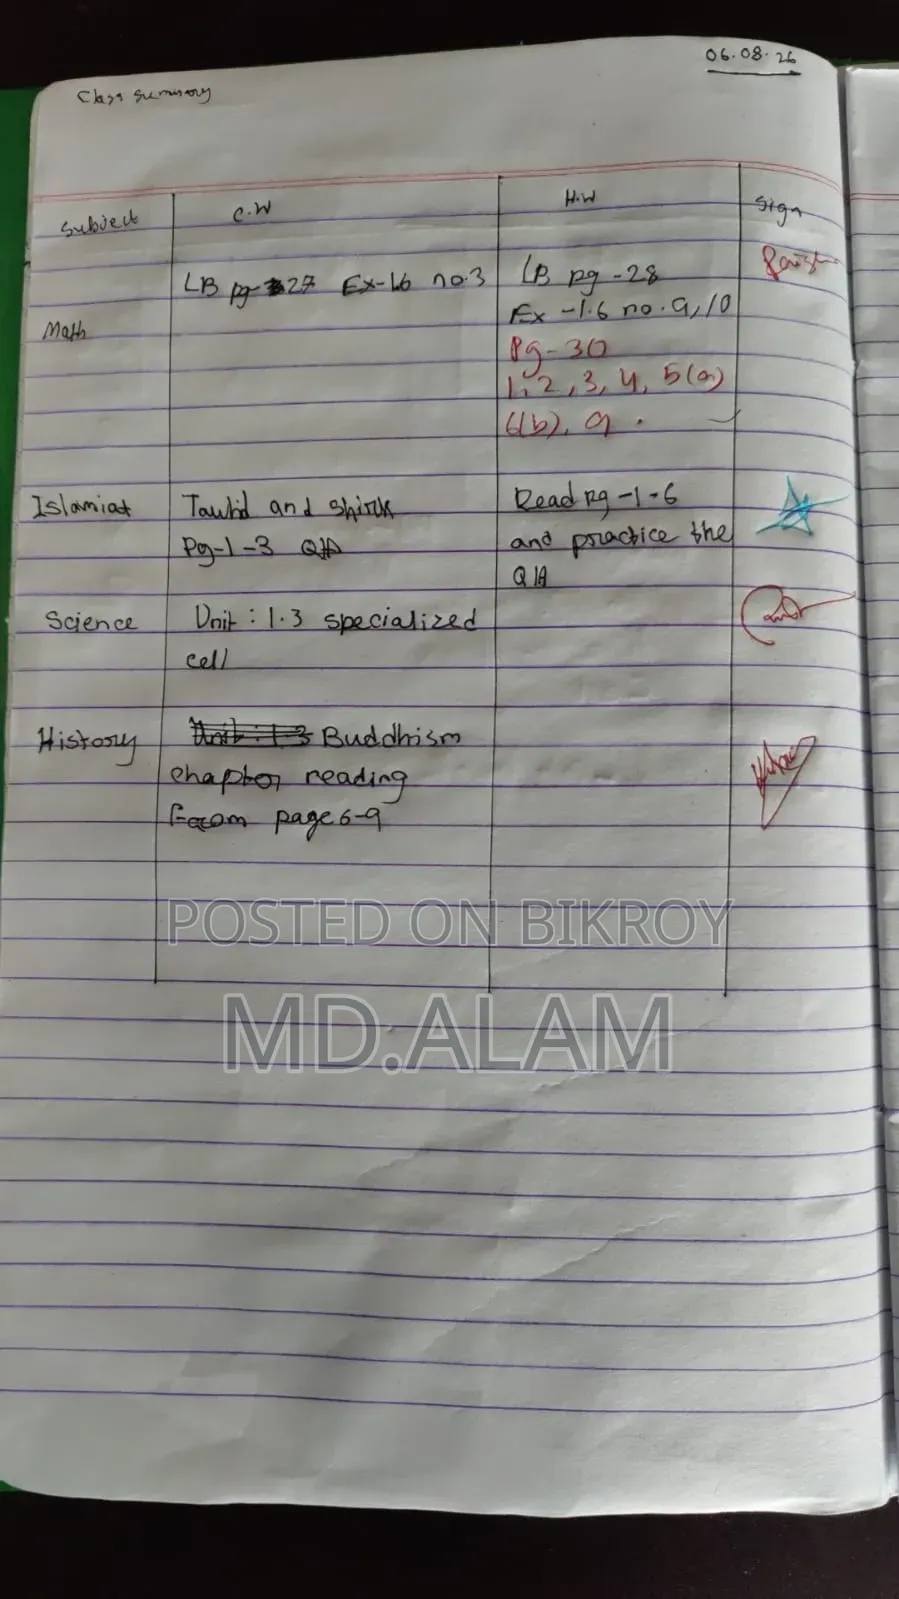 06.08.26
Class summary
Subject C.W H.W Sign
Math LB pg-27 Ex-1.6 no.3 LB pg -28
Ex -1.6 no.9,10
Pg-30
1, 2, 3, 4, 5(a)
6(b), 9.
Islamiat Tawhid and Shirk Read pg -1-6
Pg-1-3 Q/A and practice the
Q/A
Science Unit : 1.3 specialized
cell
History Unit : 1.3 Buddhism
chapter reading
from page 6-9
POSTED ON BIKROY
MD.ALAM